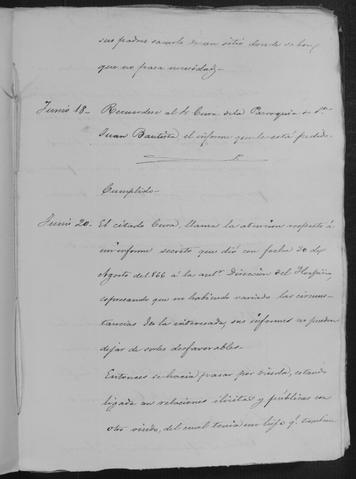 sus padres sacarla de un sitio donde saben
que no pasa necesidad,,
Junio 18 - Recuérdese al Sr Cura de la Parroquia de Sn
Juan Bautista el informe que le está pedido.
Cumplido -
Junio 20. El citado Cura, llama la atencion respecto á
un informe secreto que dió con fecha 20 de
Agosto de 1866 á la antr Direccion del Hospicio,
espresando que no habiendo variado las circuns-
tancias de la interesada, sus informes no pueden
dejar de serles desfavorables.
Entonces se hacia pasar por viuda, estando
ligada en relaciones ilícitas y públicas con
otro viudo, del cual tenia un hijo qe tambien